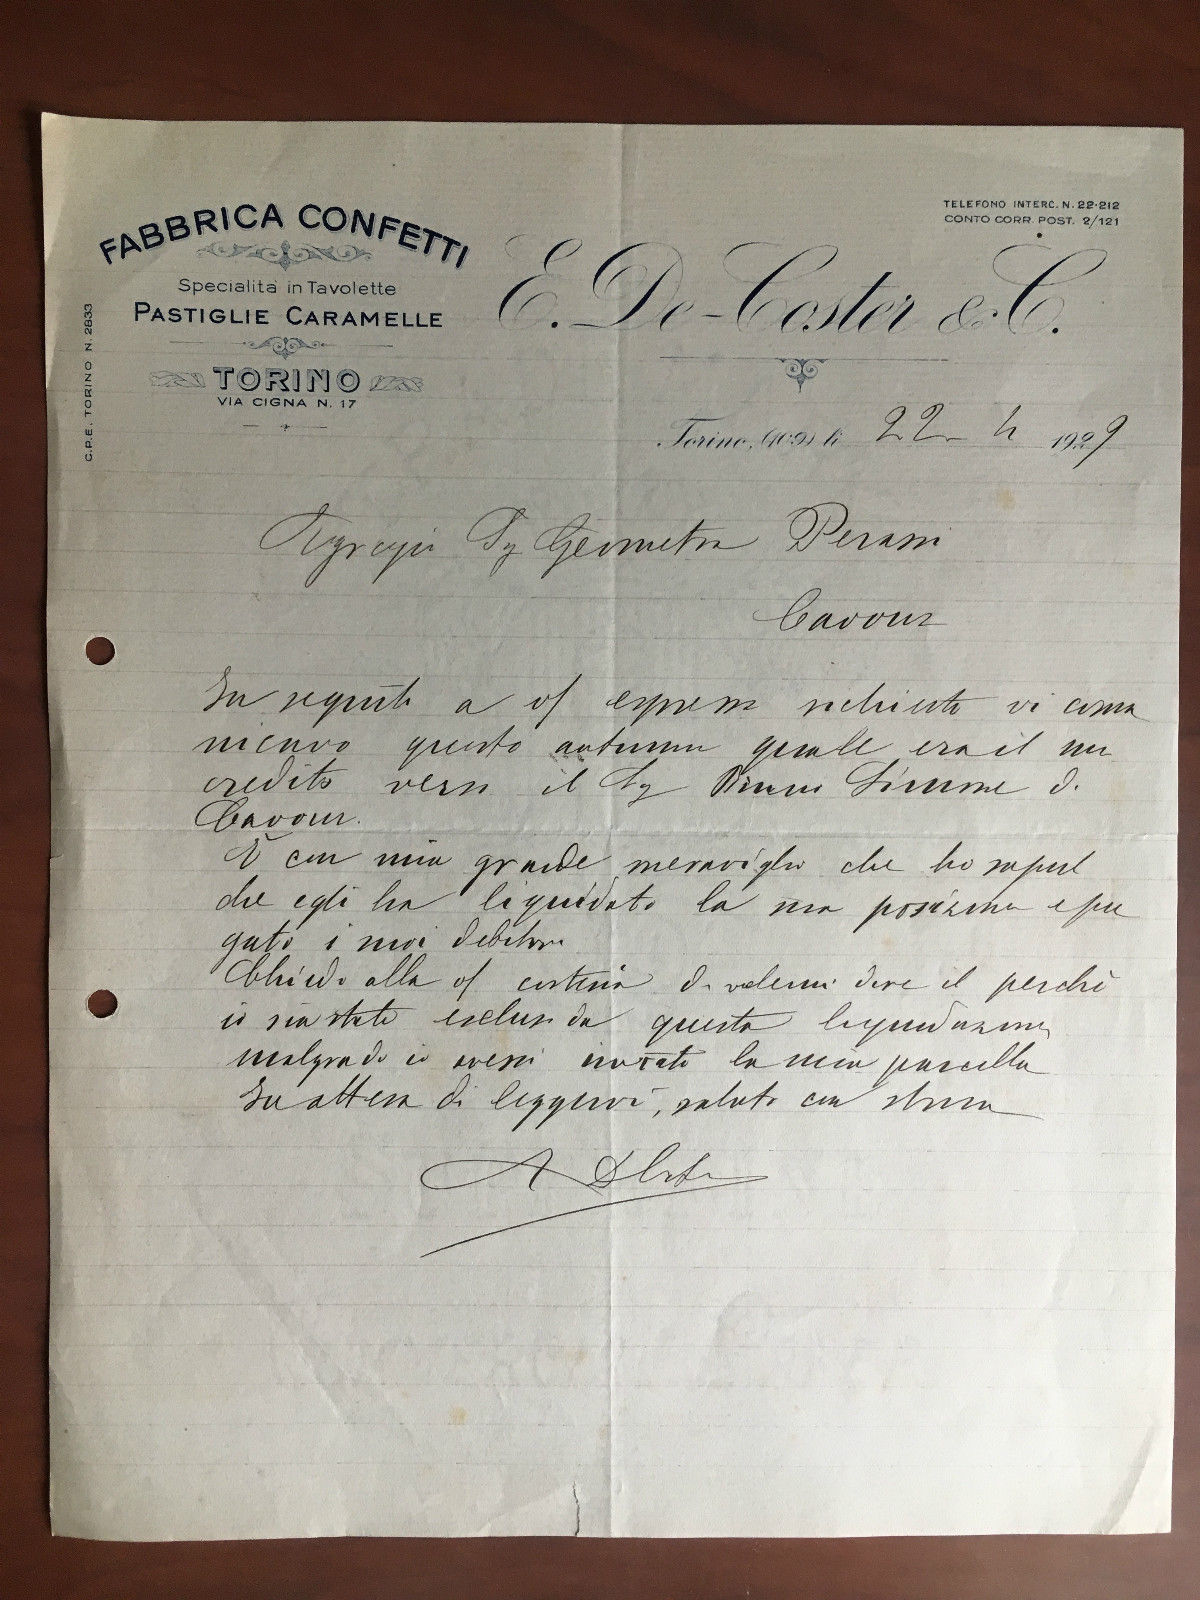 FABBRICA CONFETTI
Specialità in Tavolette
PASTIGLIE CARAMELLE
TORINO
VIA CIGNA N. 17
C.P.E. TORINO N. 2833
TELEFONO INTERC. N. 22-212
CONTO CORR. POST. 2/121
E. De-Coster & C.
Torino, (109) li 22 - 4 1929
Egregio Sg Geometra Perassi
Cavour
In seguito a vs espressa richiesta vi comu
nicavo questo autunno quale era il mio
credito verso il Sg Simone di
Cavour.
È con mia grande meraviglia che ho saputo
che egli ha liquidato la sua posizione e pa
gato i suoi debitori
Chiedo alla vs cortesia di volermi dire il perchè
io sia stato escluso da questa liquidazione
malgrado io avessi inviato la mia parcella
In attesa di leggervi, saluto con stima